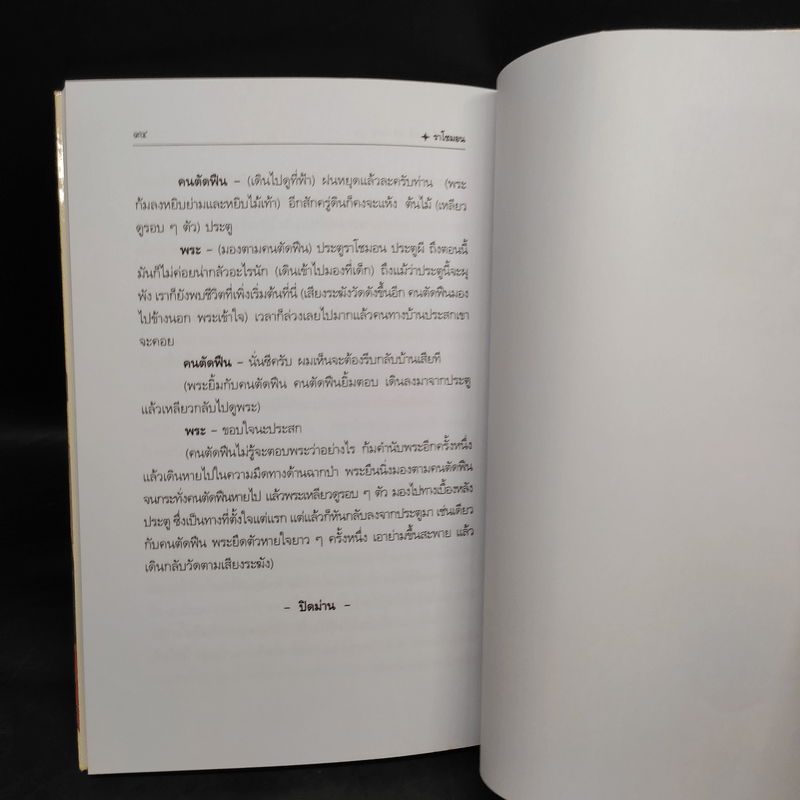 ๙๔
ราโชมอน
คนตัดฟืน – (เดินไปดูที่ฟ้า) ฝนหยุดแล้วละครับท่าน (พระ
ก้มลงหยิบย่ามและหยิบไม้เท้า) อีกสักครู่ดินก็คงจะแห้ง ต้นไม้ (เหลียว
ดูรอบ ๆ ตัว) ประตู
พระ – (มองตามคนตัดฟืน) ประตูราโชมอน ประตูผี ถึงตอนนี้
มันก็ไม่ค่อยน่ากลัวอะไรนัก (เดินเข้าไปมองที่เด็ก) ถึงแม้ว่าประตูนี้จะผุ
พัง เราก็ยังพบชีวิตที่เพิ่งเริ่มต้นที่นี่ (เสียงระฆังวัดดังขึ้นอีก คนตัดฟืนมอง
ไปข้างนอก พระเข้าใจ) เวลาก็ล่วงเลยไปมากแล้วคนทางบ้านประสกเขา
จะคอย
คนตัดฟืน – นั่นซีครับ ผมเห็นจะต้องรีบกลับบ้านเสียที
(พระยิ้มกับคนตัดฟืน คนตัดฟืนยิ้มตอบ เดินลงมาจากประตู
แล้วเหลียวกลับไปดูพระ)
พระ – ขอบใจนะประสก
(คนตัดฟืนไม่รู้จะตอบพระว่าอย่างไร ก้มคำนับพระอีกครั้งหนึ่ง
แล้วเดินหายไปในความมืดทางด้านฉากป่า พระยืนนิ่งมองตามคนตัดฟืน
จนกระทั่งคนตัดฟืนหายไป แล้วพระเหลียวดูรอบ ๆ ตัว มองไปทางเบื้องหลัง
ประตู ซึ่งเป็นทางที่ตั้งใจแต่แรก แต่แล้วก็หันกลับลงจากประตูมา เช่นเดียว
กับคนตัดฟืน พระยืดตัวหายใจยาว ๆ ครั้งหนึ่ง เอาย่ามขึ้นสะพาย แล้ว
เดินกลับวัดตามเสียงระฆัง)
– ปิดม่าน –